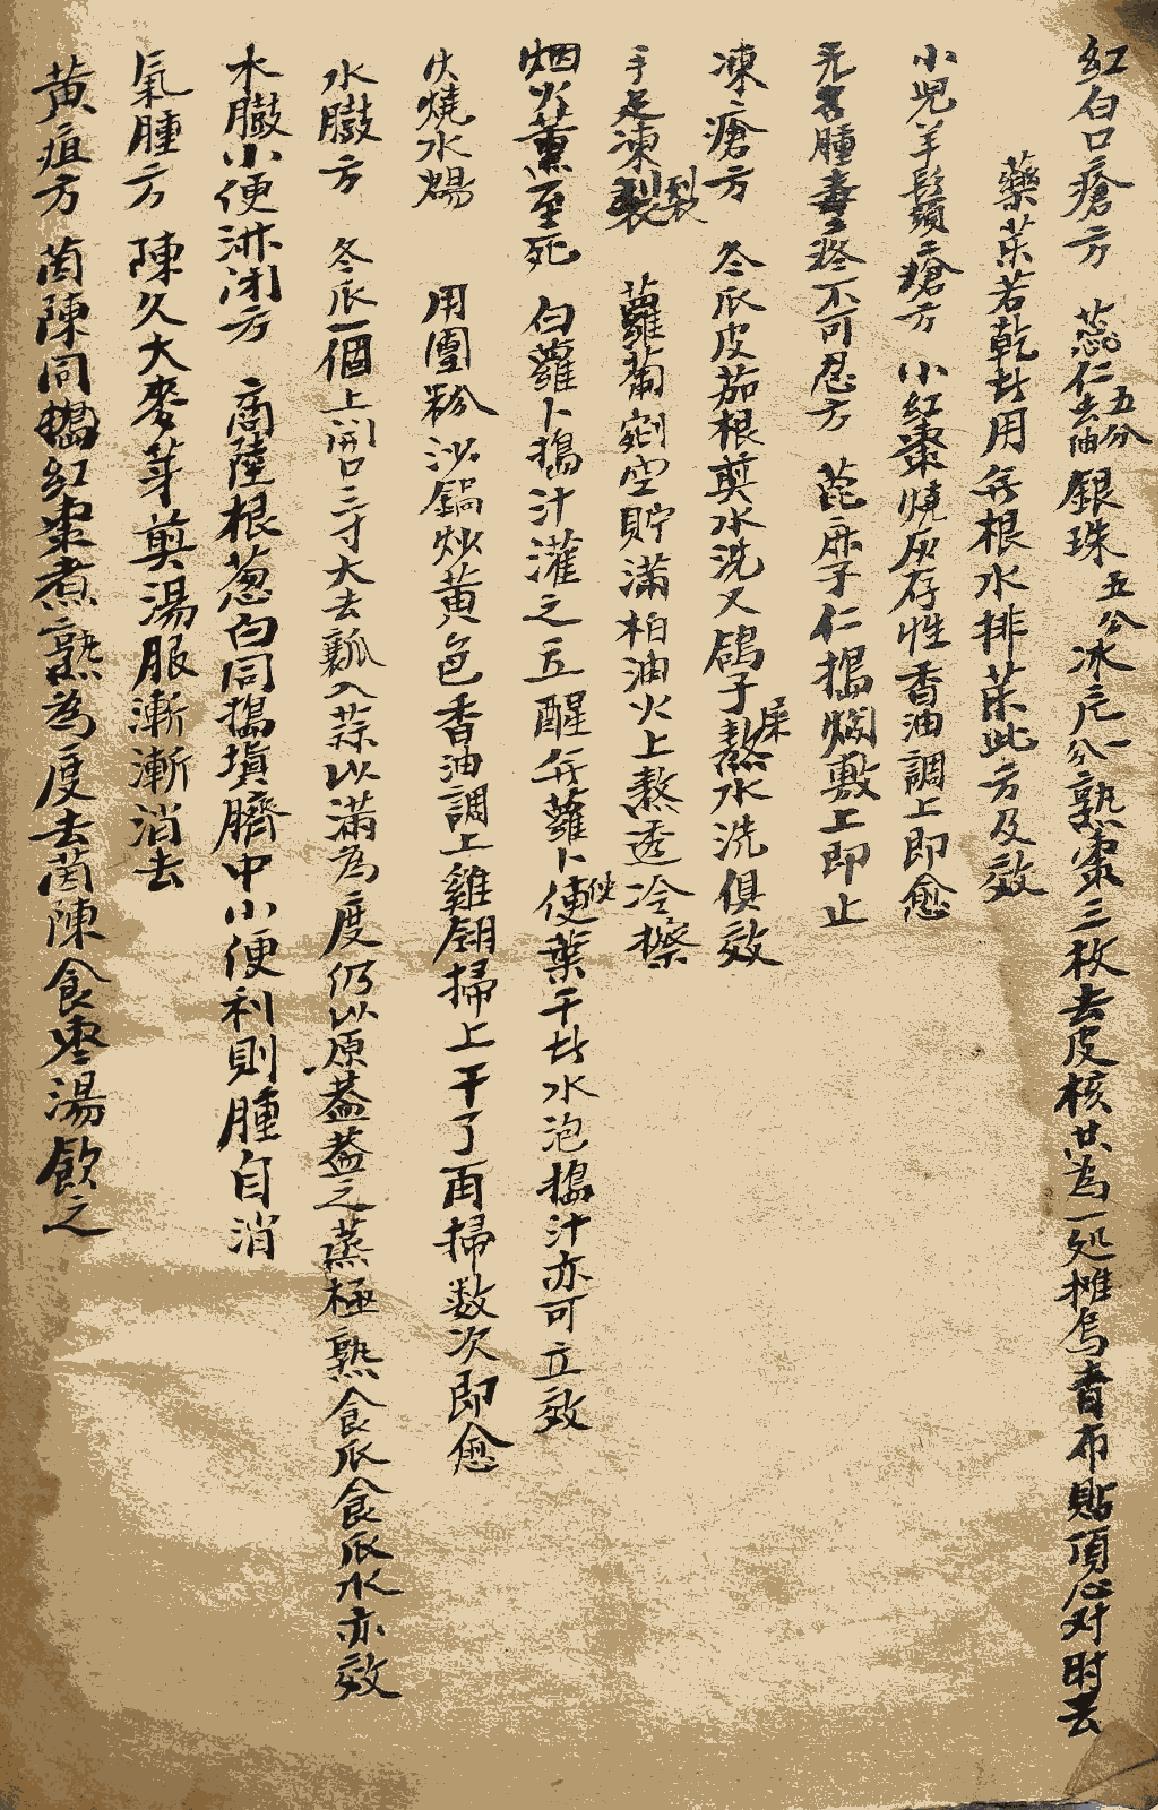 紅白口瘡方 蕊仁五分去油 銀珠五分冰片一分熟棗三枚去皮核共為一処攤烏青布貼頂心对时去
藥菜若乾时用無根水排菜此方及效
小兒羊鬍瘡方 小紅棗燒灰存性香油調上即愈
无名腫毒疼不可忍方 萞麻子仁搗爛敷上即止
凍瘡方 冬瓜皮茄根煎水洗又鴿子屎熬水洗俱效
手足凍裂 蘿蔔剜空貯滿柏油火上熬透冷擦
烟火薰至死 白蘿卜搗汁灌之立醒無蘿卜使葉干时水泡搗汁亦可立效
火燒水燙 用團粉沙鍋炒黄色香油調上雞翎掃上干了再掃数次即愈
水臌方 冬瓜一個上開口三寸大去瓤入蒜以滿為度仍以原蓋蓋之蒸極熟食瓜食瓜水亦效
水臌小便淋闭方 商陸根葱白同搗填臍中小便利則腫自消
氣腫方 陳久大麥芽煎湯服漸漸消去
黄疸方 茵陳同紅棗煮熟為度去茵陳食枣湯飲之